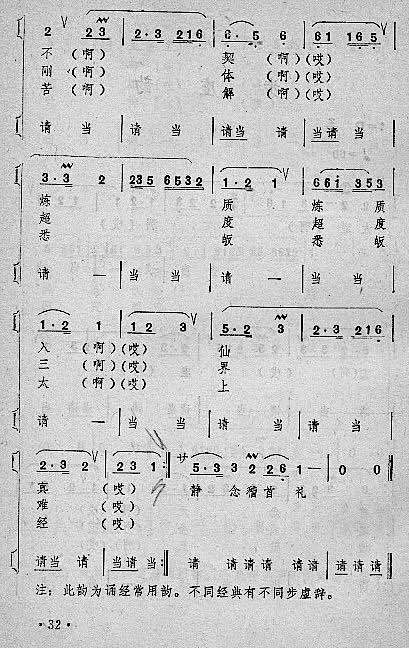 2 2 3 2·3 2 1 6 6·5 6 6 1 1 6 5
不（啊） 契（啊）（哎）
刚（啊） 体（啊）（哎）
苦（啊） 解（啊）（哎）
请 当 请 当 请当 请当 请当 请
3·3 2 2 3 5 6 5 3 2 1·2 1 6 6 i 3 5 3
炼 质 炼 质
超 度 超 度
悉 皈 悉 皈
请 — 当 当 请 — 当 当
1·2 1 1 2 3 5·2 3 2·3 2 1 6
入（啊）（哎） 仙
三（啊）（哎） 界
太（啊）（哎） 上
请 — 当 当 请 当 请 当
2·3 2 2 3 1 サ 5·3 3 2 2 6 1 — 0 0
真（哎） 静 念 稽 首 礼
难（哎）
经（哎）
请当 请 当请 当 请 请 请 请 请请 请请 请
注：此韵为诵经常用韵。不同经典有不同步虚辞。
·32·